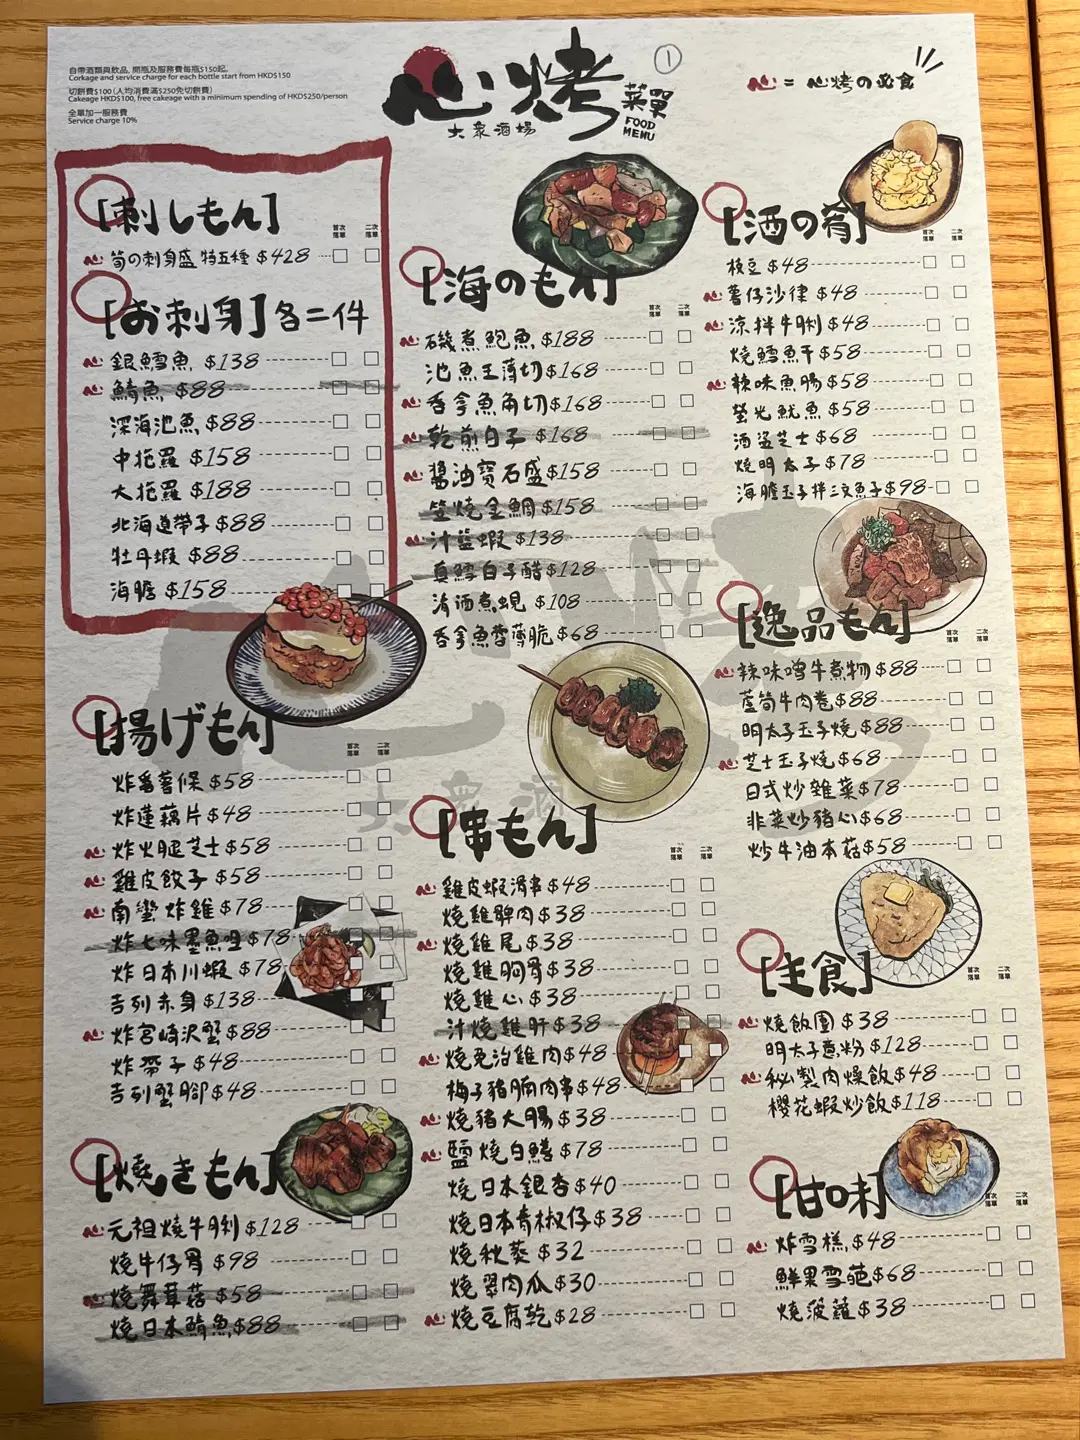 自帶酒類與飲品, 開瓶及服務費每瓶$150起.
Corkage and service charge for each bottle start from HKD$150
切餅費$100 (人均消費滿$250免切餅費)
Cakeage HKD$100, free cakeage with a minimum spending of HKD$250/person
全單加一服務費
Service charge 10%
心烤
大衆酒場
菜單
FOOD
MENU
①
心 = 心烤の必食
[刺しもん]
首次落單 二次落單
心 筍の刺身盛 特五種 $428
[お刺身] 各二件
心 銀鱈魚 $138
心 鯖魚 $88
深海池魚 $88
中拖羅 $158
大拖羅 $188
北海道帶子 $88
牡丹蝦 $88
海膽 $158
[揚げもん]
首次落單 二次落單
炸番薯條 $58
炸蓮藕片 $48
心 炸火腿芝士 $58
心 雞皮餃子 $58
心 南蠻炸雞 $78
炸七味墨魚$78
炸日本川蝦 $78
吉列赤身 $138
心 炸宮崎沢蟹 $88
炸帶子 $48
吉列蟹腳 $48
[燒きもん]
心 元祖燒牛脷 $128
燒牛仔骨 $98
心 燒舞茸菇 $58
燒日本鯖魚 $88
[海のもん]
首次落單 二次落單
心 磯煮鮑魚 $188
池魚王薄切 $168
心 吞拿魚角切 $168
心 乾煎白子 $168
心 醬油寶石盛 $158
燒金鯛 $158
心 汁藍蝦 $138
真鱈白子醋 $128
清酒煮蜆 $108
吞拿魚蓉薄脆 $68
[串もん]
首次落單 二次落單
心 雞皮蝦滑串 $48
燒雞髀肉 $38
心 燒雞尾 $38
燒雞胸骨 $38
燒雞心 $38
汁燒雞肝 $38
心 燒免治雞肉 $48
梅子豬腩肉串 $48
心 燒豬大腸 $38
心 鹽燒白鱔 $78
燒日本銀杏 $40
燒日本青椒仔 $38
燒秋葵 $32
燒翠肉瓜 $30
心 燒豆腐乾 $28
[酒の肴]
首次落單 二次落單
枝豆 $48
心 薯仔沙律 $48
心 涼拌牛脷 $48
燒鱈魚干 $58
心 辣味魚腸 $58
螢光魷魚 $58
酒盜芝士 $68
燒明太子 $78
海膽玉子拌三文魚子 $98
[逸品もん]
首次落單 二次落單
心 辣味噌牛煮物 $88
蘆筍牛肉卷 $88
明太子玉子燒 $88
心 芝士玉子燒 $68
日式炒雜菜 $78
韭菜炒豬心 $68
炒牛油本菇 $58
[主食]
首次落單 二次落單
心 燒飯團 $38
明太子意粉 $128
心 秘製肉燥飯 $48
櫻花蝦炒飯 $118
[甘味]
首次落單 二次落單
心 炸雪糕 $48
鮮果雪葩 $68
燒菠蘿 $38